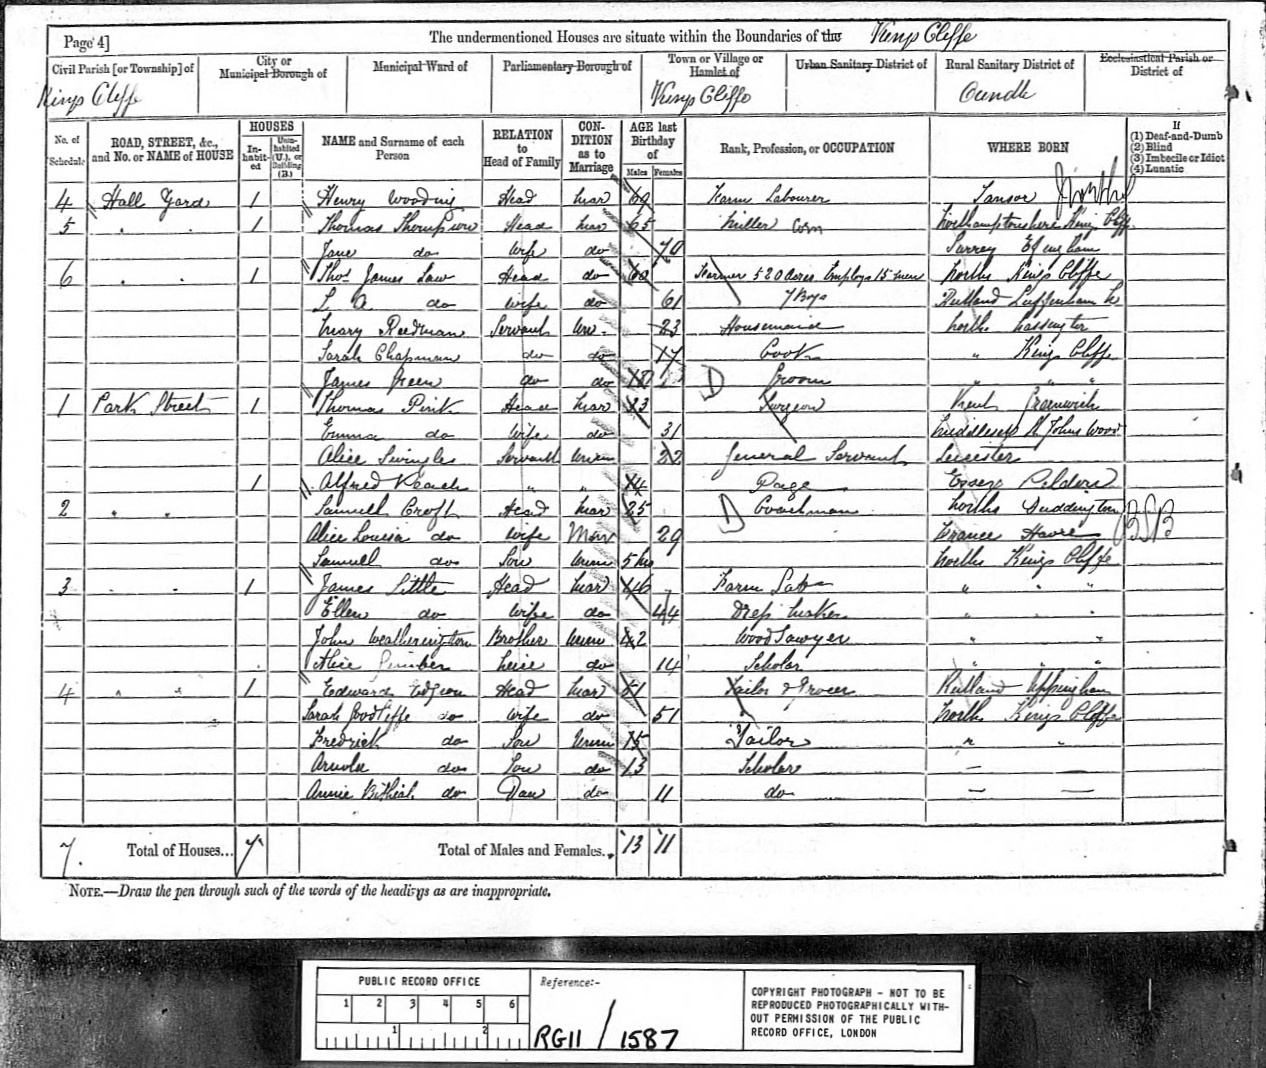 Page 4] The undermentioned Houses are situate within the Boundaries of the Kings Cliffe
Civil Parish [or Township] of
Kings Cliffe
City or Municipal Borough of
Municipal Ward of
Parliamentary Borough of
Town or Village or Hamlet of
Kings Cliffe
Urban Sanitary District of
Rural Sanitary District of
Oundle
Ecclesiastical Parish or District of
No. of Schedule
ROAD, STREET, &c., and No. or NAME of HOUSE
HOUSES
Inhabited
Uninhabited (U.), or Building (B.)
NAME and Surname of each Person
RELATION to Head of Family
CONDITION as to Marriage
AGE last Birthday of
Males Females
Rank, Profession, or OCCUPATION
WHERE BORN
If
(1) Deaf-and-Dumb
(2) Blind
(3) Imbecile or Idiot
(4) Lunatic
4 Hall Yard 1 Henry Wooding Head mar 60 Farm Labourer Tansor
5 " " 1 Thomas Thompson Head mar 65 Miller Corn Northamptonshire King Cliffe
Jane do Wife do 70 Surrey
6 " " 1 Thos James Law Head do 60 Farmer 520 acres Employs 15 men
7 Boys
Norths Kings Cliffe
L. A. do Wife do 61 Rutland Luffenham
Mary Reedman Servant Un- 23 Housemaid Norths
Sarah Chapman do do 17 Cook " Kings Cliffe
James Green do do 18 Groom " " "
1 Park Street 1 Thomas Head mar Surgeon Kent Greenwich
Emma do Wife do 31 Middlesex St Johns Wood
Alice Swingler Servant Unm 22 General Servant Leicester
1 Alfred " " 14 Page Essex
2 " " Samuell Croft Head mar 25 Coachman Norths Duddington
Alice Louisa do Wife Marr 29 France Havre
Samuell do Son Unm 5 mo Norths Kings Cliffe
3 " " 1 James Little Head mar 46 Farm Lab " " "
Ellen do Wife do 44 Dress Maker " "
John Weatherington Brother Unm 42 Wood Sawyer " "
Alice Neice do 14 Scholar " " "
4 " " 1 Edward Head mar 51 Tailor & Grocer Rutland Uppingham
Sarah do Wife do 51 Norths Kings Cliffe
Fredrick do Son Unm 15 Tailor " "
Arnold do Son do 13 Scholar — —
Annie do Dau do 11 do — —
7. Total of Houses... 7 Total of Males and Females.. 13 11
NOTE.—Draw the pen through such of the words of the headings as are inappropriate.
PUBLIC RECORD OFFICE
1 2 3 4 5 6
1 2
Reference:-
RG11 / 1587
COPYRIGHT PHOTOGRAPH - NOT TO BE
REPRODUCED PHOTOGRAPHICALLY WITH-
OUT PERMISSION OF THE PUBLIC
RECORD OFFICE, LONDON